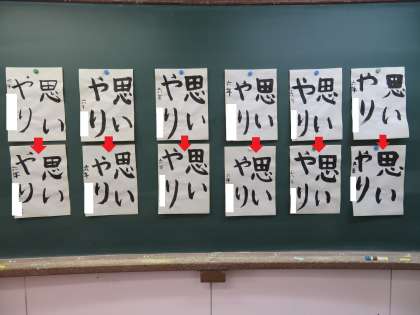 思い
やり
思い
やり
思い
やり
思い
やり
思い
やり
思い
やり
思い
やり
思い
やり
思い
やり
思い
やり
思い
やり
思い
やり